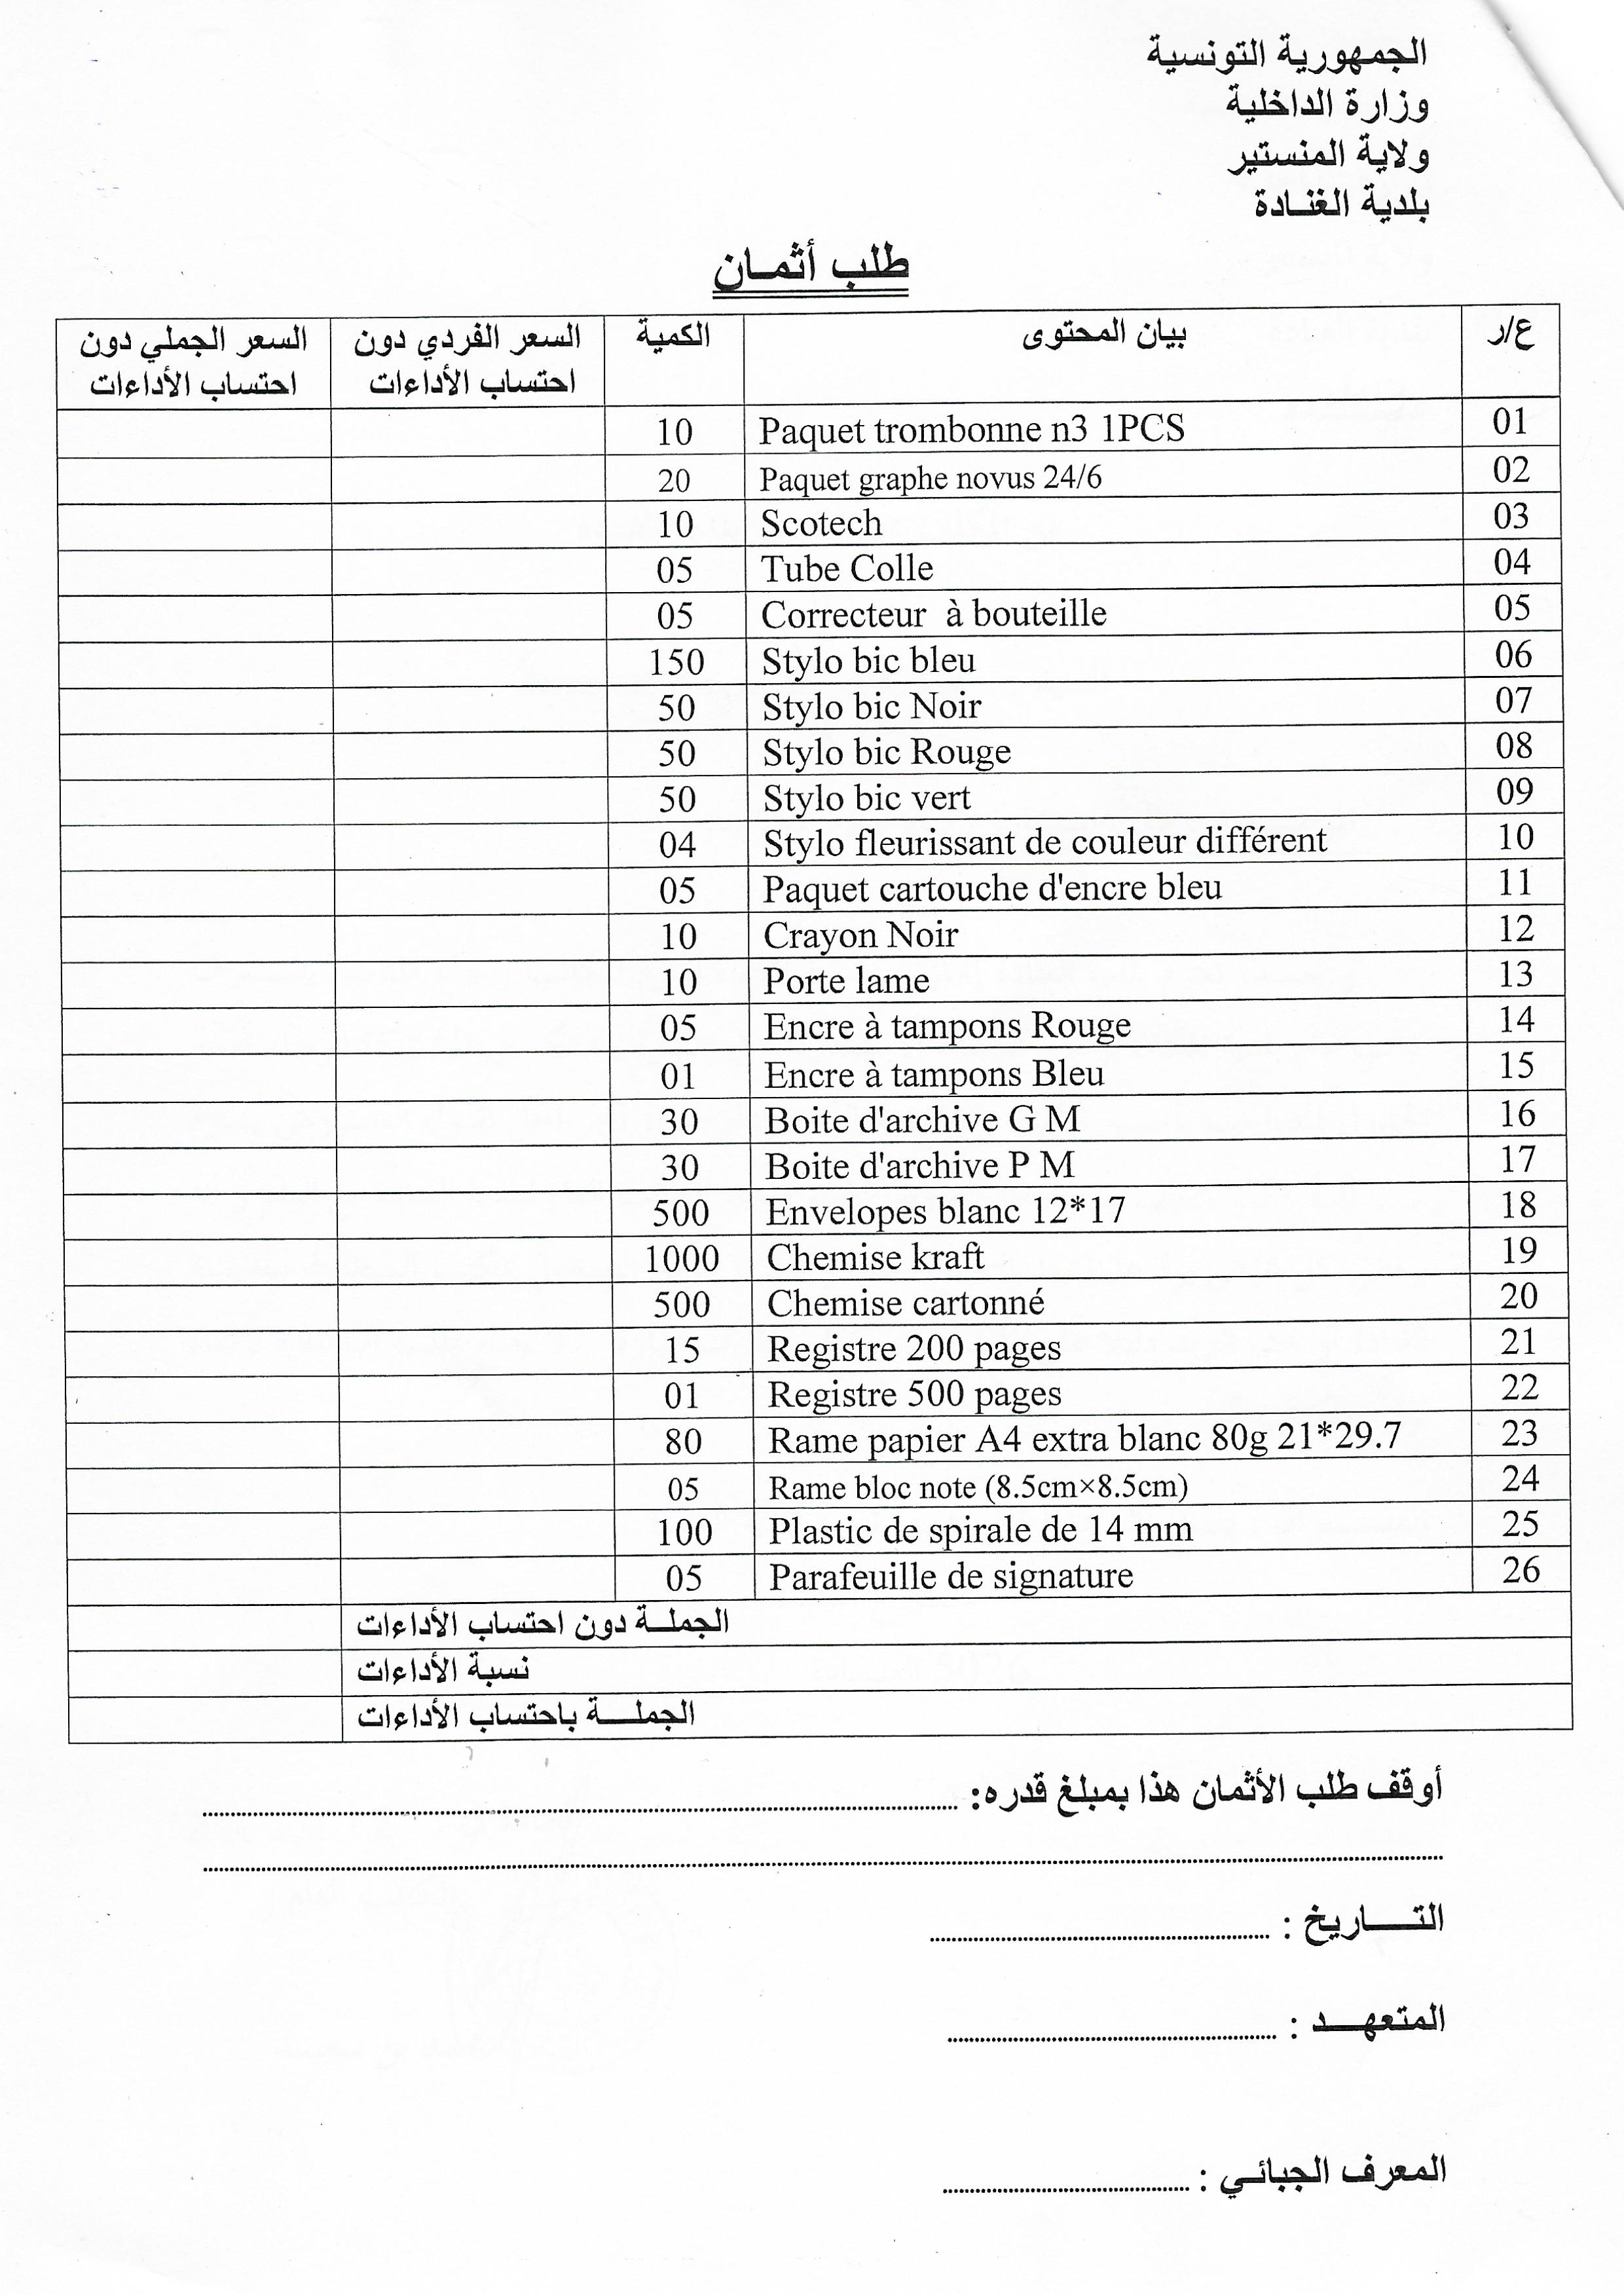 الجمهورية التونسية
وزارة الداخلية
ولاية المنستير
بلدية الغنـادة
طلب أثمـان
ع/ر بيان المحتوى الكمية السعر الفردي دون احتساب الأداءات السعر الجملي دون احتساب الأداءات
01 Paquet trombonne n3 1PCS 10
02 Paquet graphe novus 24/6 20
03 Scotech 10
04 Tube Colle 05
05 Correcteur à bouteille 05
06 Stylo bic bleu 150
07 Stylo bic Noir 50
08 Stylo bic Rouge 50
09 Stylo bic vert 50
10 Stylo fleurissant de couleur différent 04
11 Paquet cartouche d'encre bleu 05
12 Crayon Noir 10
13 Porte lame 10
14 Encre à tampons Rouge 05
15 Encre à tampons Bleu 01
16 Boite d'archive G M 30
17 Boite d'archive P M 30
18 Envelopes blanc 12*17 500
19 Chemise kraft 1000
20 Chemise cartonné 500
21 Registre 200 pages 15
22 Registre 500 pages 01
23 Rame papier A4 extra blanc 80g 21*29.7 80
24 Rame bloc note (8.5cm×8.5cm) 05
25 Plastic de spirale de 14 mm 100
26 Parafeuille de signature 05
الجملـة دون احتساب الأداءات
نسبة الأداءات
الجملـــة باحتساب الأداءات
أوقف طلب الأثمان هذا بمبلغ قدره:
التـــــاريخ :
المتعهـــد :
المعرف الجبائـي :